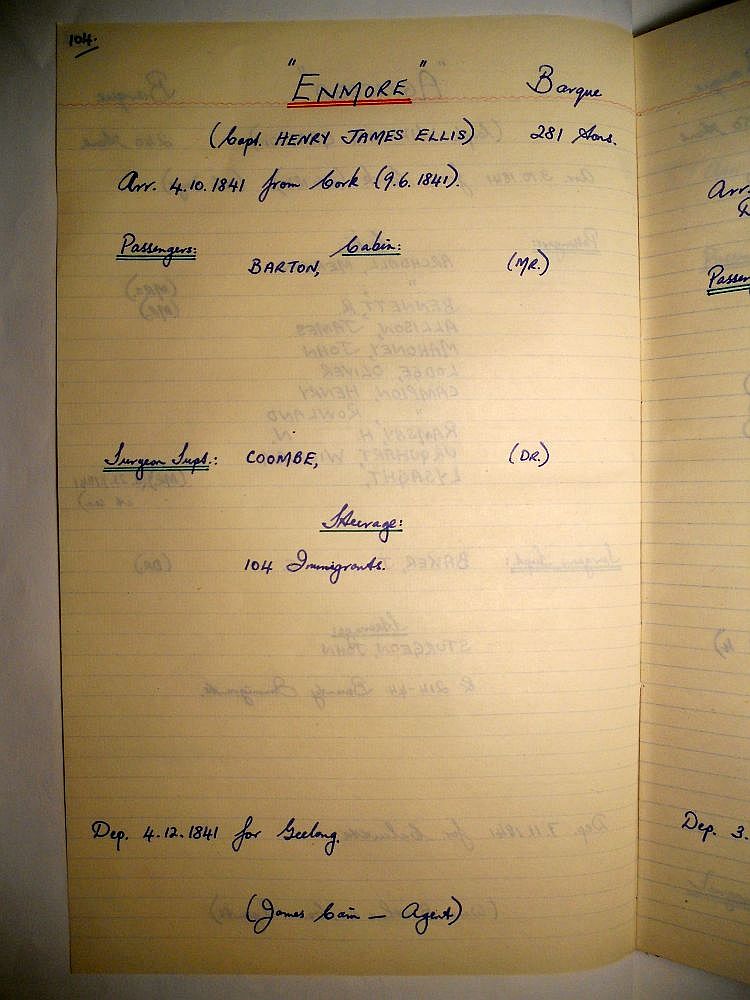 104.
"ENMORE" Barque
(Capt. HENRY JAMES ELLIS) 281 tons.
Arr. 4.10.1841 from Cork (9.6.1841).
Passengers: Cabin:
BARTON, (MR.)
Surgeon Supt.: COOMBE, (DR.)
Steerage:
104 Immigrants.
Dep. 4.12.1841 for Geelong.
(James Cain — Agent)
Arr.
Passen
Dep. 3.